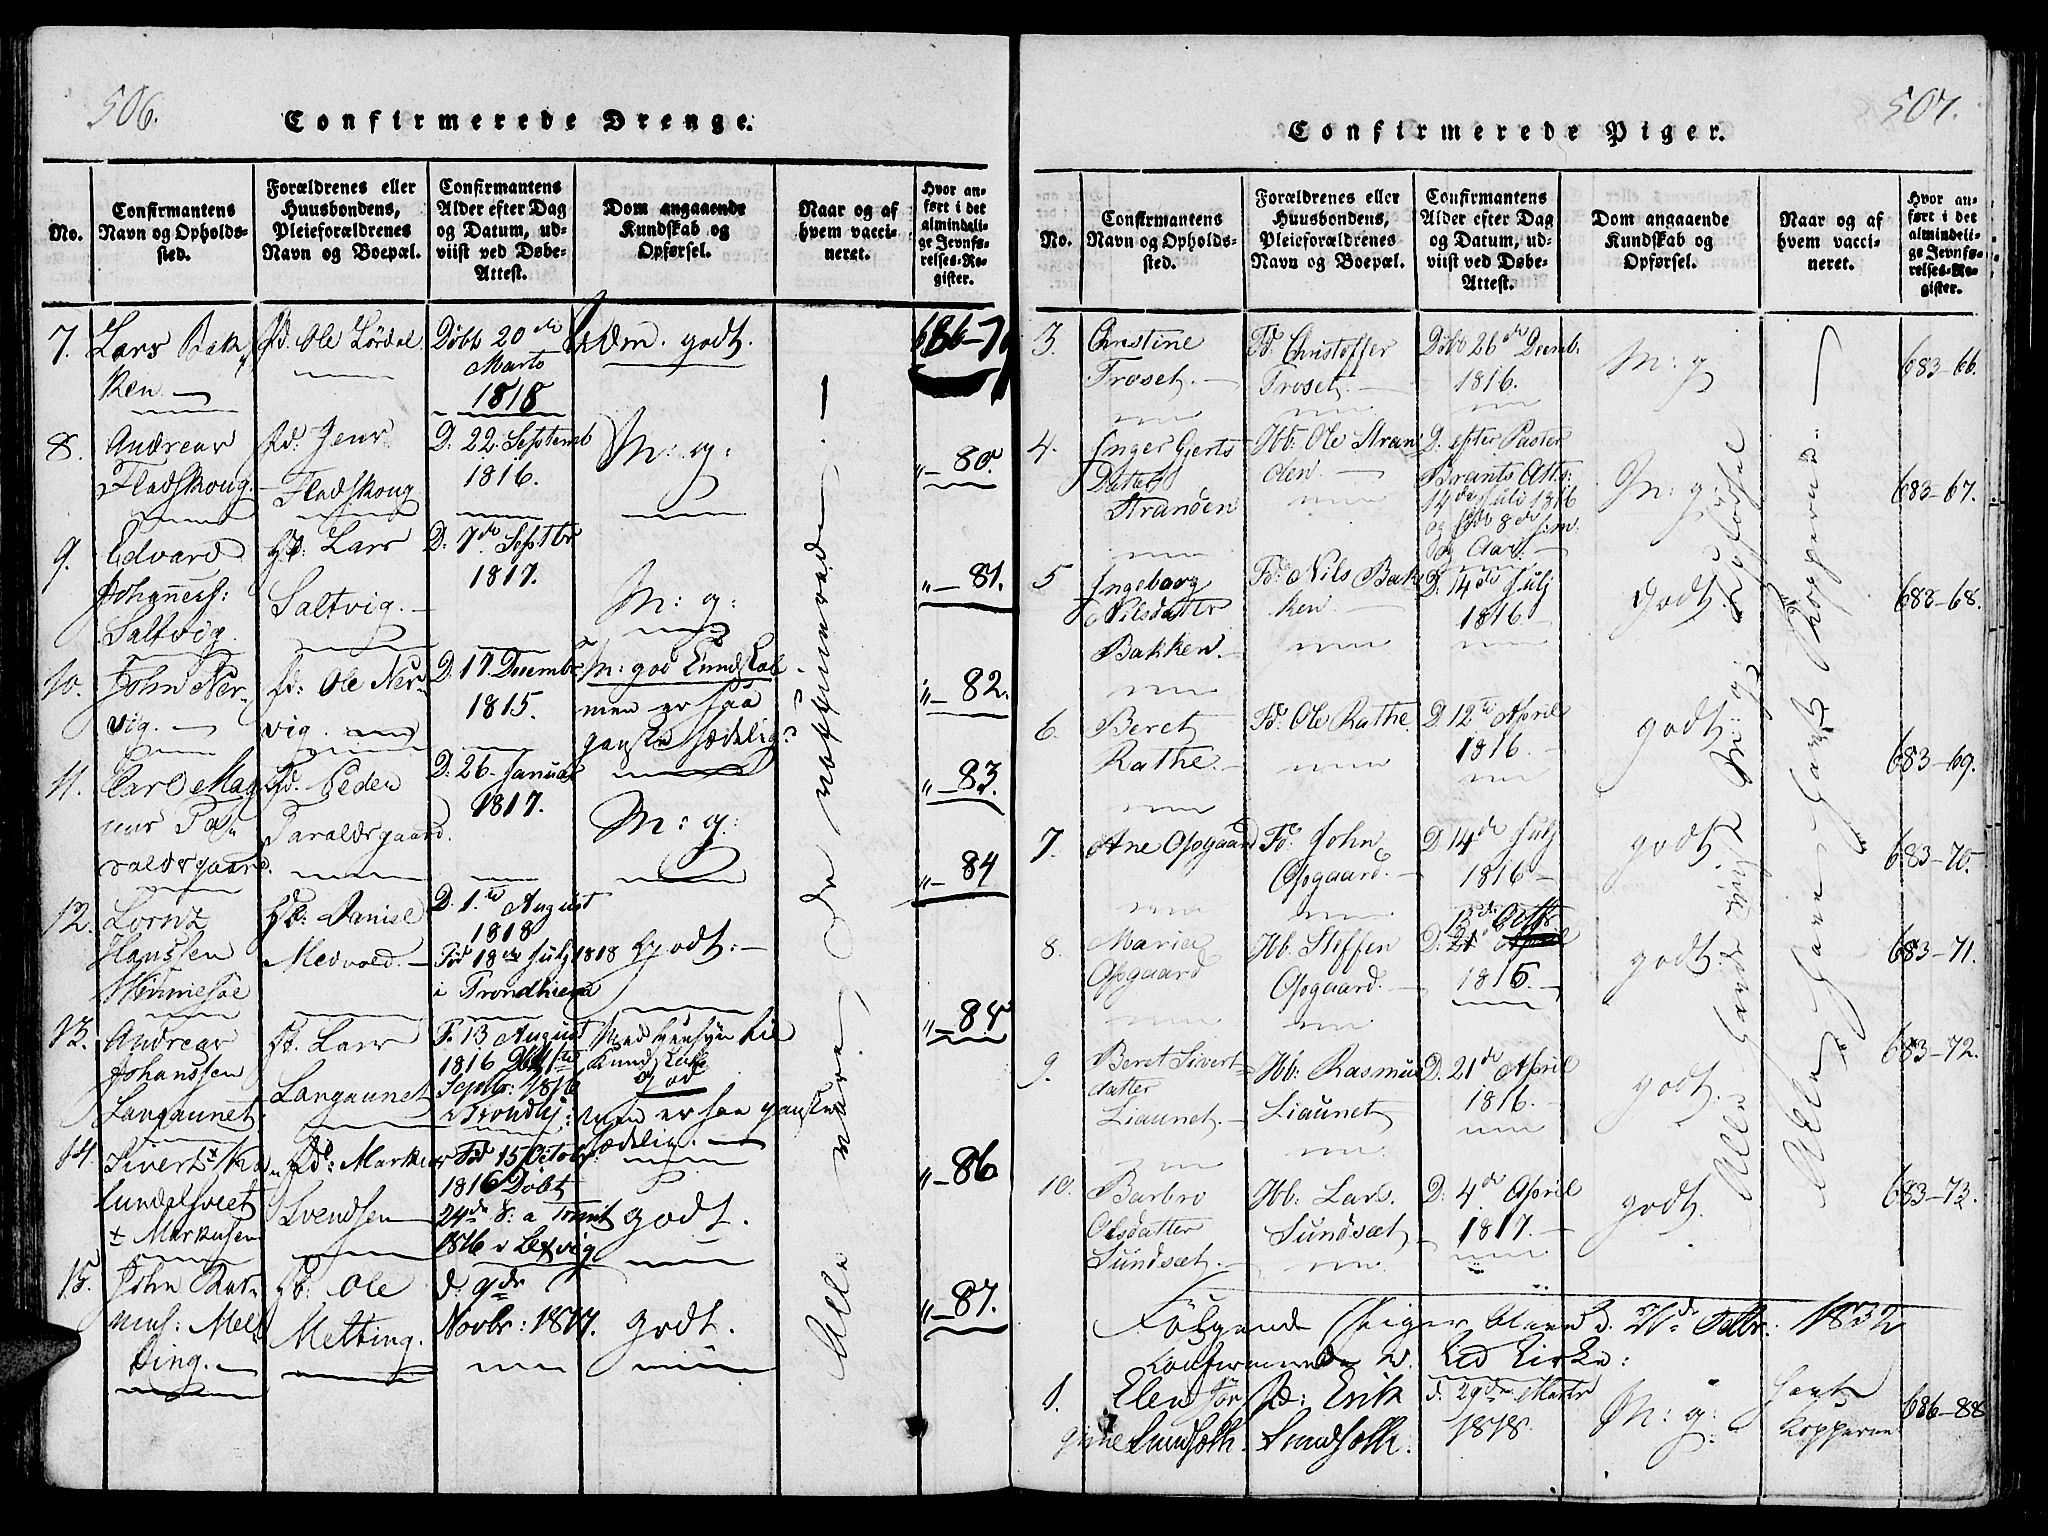 506.
Confirmerede Drenge.
No.
Confirmantens
Navn og Opholds-
sted.
Forældrenes eller
Huusbondens,
Pleieforældrenes
Navn og Boepæl.
Confirmantens
Alder efter Dag
og Datum, ud-
viist ved Døbe-
Attest.
Dom angaaende
Kundskab og
Opførsel.
Naar og af
hvem vacci-
neret.
Hvor an-
ført i det
almindeli-
ge Jevnfø-
relses-Re-
gister.
7.
Lars Bak
ken
Fd. Ole Lørdal
Døbt 20de
Marts
1818
godt.
686-79
8.
Andreas
Fladskoug
Fd. Jens
Fladskoug
D: 22. Septemb
1816.
M: g:
"-80.
9.
Edvard
Johanness:
Saltvig.
Hb: Lars
Saltvig.
D: 7de Septbr
1817.
M: g:
"-81.
10.
John Ner-
vig.
Fd: Ole Ner-
vig.
D. 17. Decembr
1815.
M: god Kundskab
men er saa
ganske sædelig?
"-82.
11.
Carl Mag
nus Pa-
raldsgaard.
Fd. Peder
Paraldsgaard.
D: 26. Januar
1817.
M: g:
"-83.
12.
Lorntz
Hanssen
Hb: Daniel
Medvold.
D. 1. August
1818
Fød 18de July 1818
i Trondhiem
Godt:
"-84
13.
Andreas
Johanssen
Langaunet
Hb. Lars
Langaunet
F. 13 August
1816
Septbr: 1816
i Trondhj:
Med Hensyn til
Kundskab
god
men er saa ganske
sædelig.
"-85
14.
Sivert
± Markusen
Fd: Markus
Svendsen
Fød 15 Octobr.
1816 Døbt
24de
1816 i Lexvig
godt.
"-86
15.
John Ras-
mus: Mel-
ting.
Hb: Ole
Melting.
d. 9de
Novbr: 1817.
godt.
"-87.
Alle være de vaksinerede
507.
Confirmerede Piger.
No.
Confirmantens
Navn og Opholds-
sted.
Forældrenes eller
Huusbondens,
Pleieforældrenes
Navn og Boepæl.
Confirmantens
Alder efter Dag
og Datum, ud-
viist ved Døbe-
Attest.
Dom angaaende
Kundskab og
Opførsel.
Naar og af
hvem vacci-
neret.
Hvor an-
ført i det
almindeli-
ge Jevnfø-
relses-Re-
gister.
3.
Christine
Troset.
Fd: Christoffer
Troset.
Døbt 26de Decemb.
1816.
M: g
683-66.
4.
Inger Gierts
Datter
Stranden
Hb: Ole Stran
den
D. efter Pastor
Brants Att:
14de Juli 1816
M: g:
683-67.
5
Ingeborg
Nilsdatter
Bakken.
Fd: Nils Bak
ken
D: 14de July
1816.
godt.
683-68.
6.
Beret
Rathe
Fd: Ole Rathe
D. 12te April
1816.
godt
683-69.
7.
Ane Opgaard
Fd: John
Opgaard.
D 14de July
1816
godt.
683-70.
8.
Maria
Opgaard
Hb. Steffen
Opgaard.
13de Octbr
D. 21de April
1815.
godt.
683-71.
9.
Beret Sivert-
datter
Liaunet.
Hb: Rasmus
Liaunet
D. 21de April
1816.
godt.
683-72.
10.
Barbro
Olsdatter
Sundsæt.
Hb: Lars
Sundsæt
D. 4de April
1817.
godt.
683-73.
Alle havde
Alle have havt Kopperne
Følgende Piger bleve d. Febr. 1832
konfirmerede v. Kirke:
1.
Elen Jør
gine Sundseth.
Fd: Erik
Sundseth.
d. 29de Marts
1818.
M: g:
havt
Kopperne
686-88